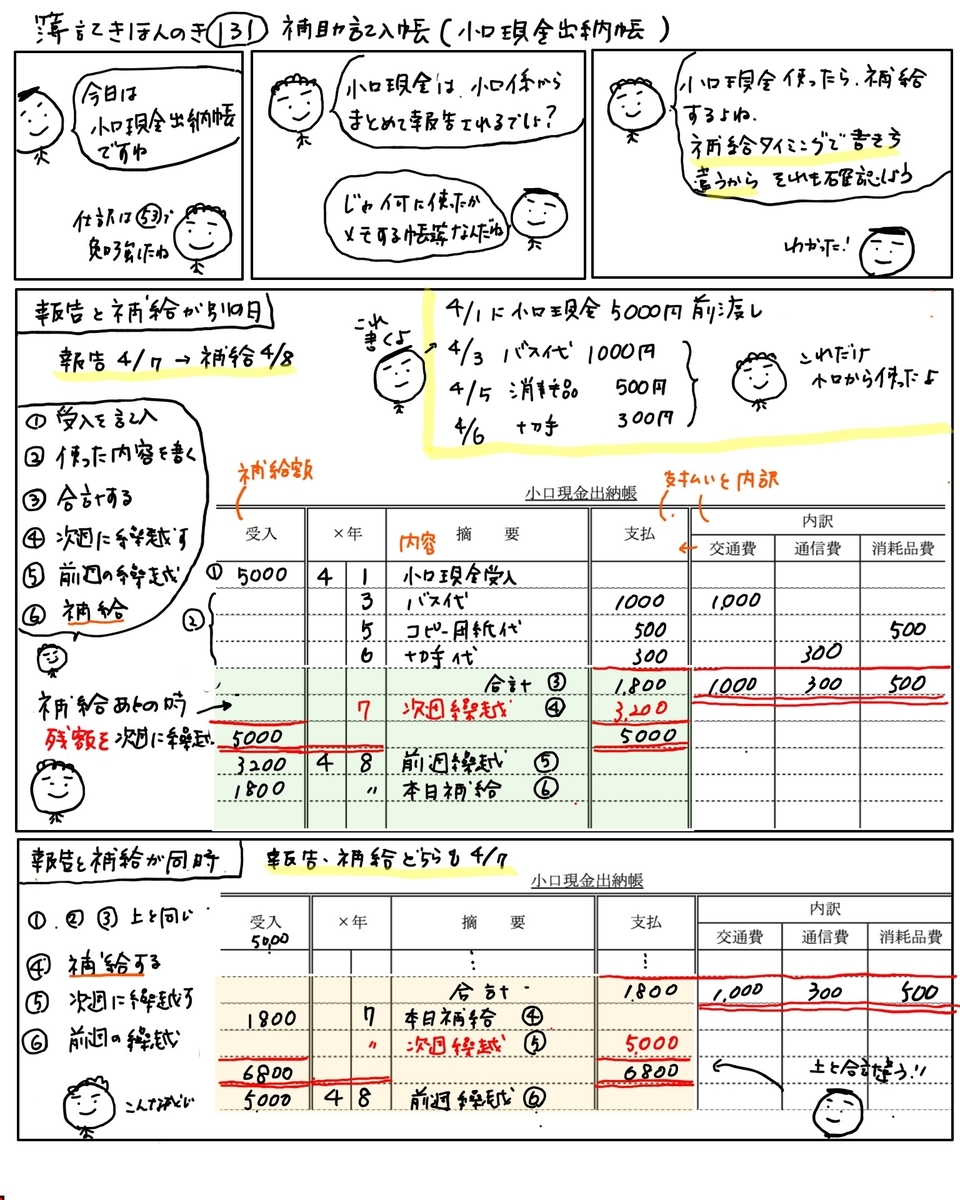 簿記きほんのき(131) 補助記入帳(小口現金出納帳)
今日は
小口現金出納帳
ですね
仕訳は(53)で
勉強したね
小口現金は、小口係から
まとめて報告されるでしょ?
じゃ何に使ったか
メモする帳簿なんだね
小口現金使ったら、補給
するよね。
補給タイミングで書き方
違うから それも確認しよう
わかった!
報告と補給が別の日
報告 4/7 → 補給 4/8
これ
書くよ
4/1に小口現金 5000円 前渡し
4/3 バス代 1000円
4/5 消耗品 500円
4/6 切手 300円
これだけ
小口から使ったよ
① 受入を記入
② 使った内容を書く
③ 合計する
④ 次週に繰越す
⑤ 前週の繰越
⑥ 補給
補給額
支払いと内訳
小口現金出納帳
受入 ×年 内容 摘要 支払 内訳
← 交通費 通信費 消耗品費
① 5000 4 1 小口現金受入
② 3 バス代 1000 1,000
5 コピー用紙代 500 500
6 切手代 300 300
合計 ③ 1,800 1,000 300 500
7 次週繰越 ④ 3,200
5000 5000
3200 4 8 前週繰越 ⑤
1800 〃 本日補給 ⑥
補給あとの時 →
残額を次週に繰越
報告と補給が同時
報告、補給どちらも 4/7
小口現金出納帳
受入 ×年 摘要 支払 内訳
交通費 通信費 消耗品費
5000
⋮ ⋮
合計 1,800 1,000 300 500
1800 7 本日補給 ④
〃 次週繰越 ⑤ 5,000
6800 6800
5000 4 8 前週繰越 ⑥
①.②③ 上と同じ
④ 補給する
⑤ 次週に繰越す
⑥ 前週の繰越
上と合計違う!!